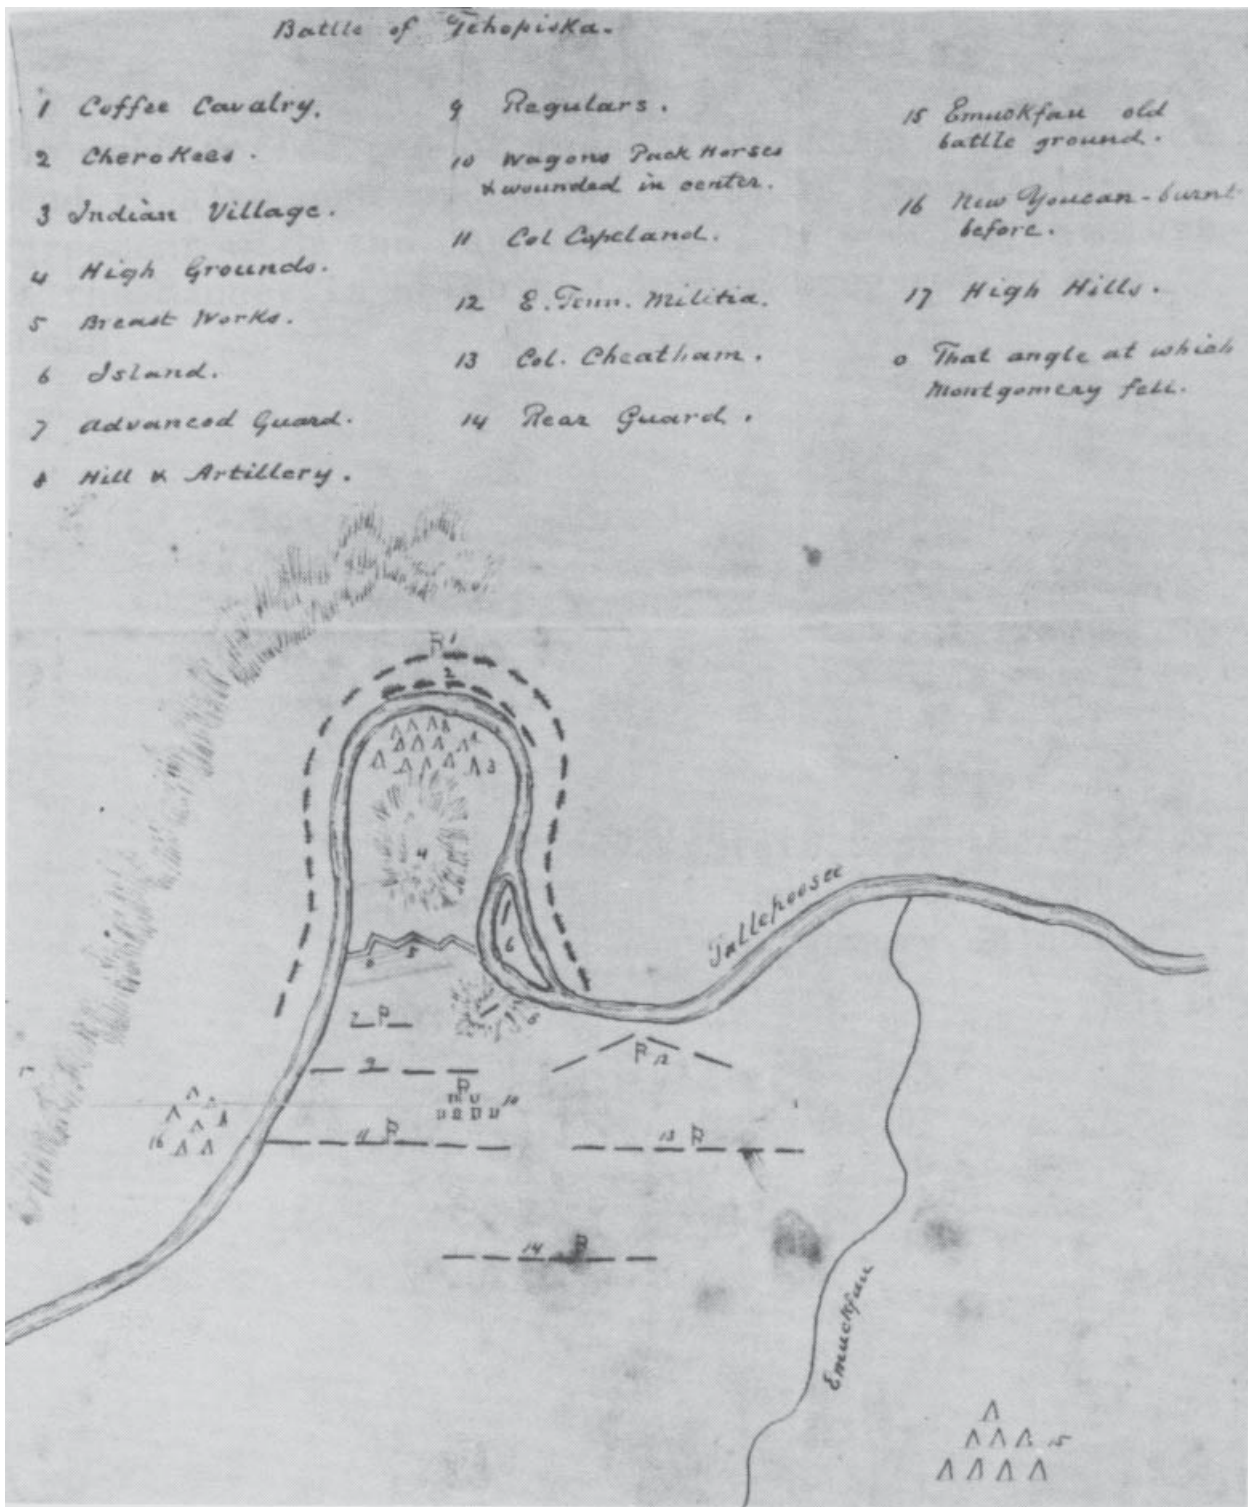 Battle of Tehopiska.
1 Coffee Cavalry.
2 Cherokees.
3 Indian Village.
4 High Grounds.
5 Breast Works.
6 Island.
7 Advanced Guard.
8 Hill & Artillery.
9 Regulars.
10 Wagons Pack Horses
& wounded in center.
11 Col Copeland.
12 E. Tenn. Militia.
13 Col. Cheatham.
14 Rear Guard.
15 Emuckfau old
battle ground.
16 New Youcan - burnt
before.
17 High Hills.
0 That angle at which
Montgomery fell.
1
2
3
4
5
0
6
Tallepoosee
7
8
9
12
10
11
13
16
14
Emuckfau
15